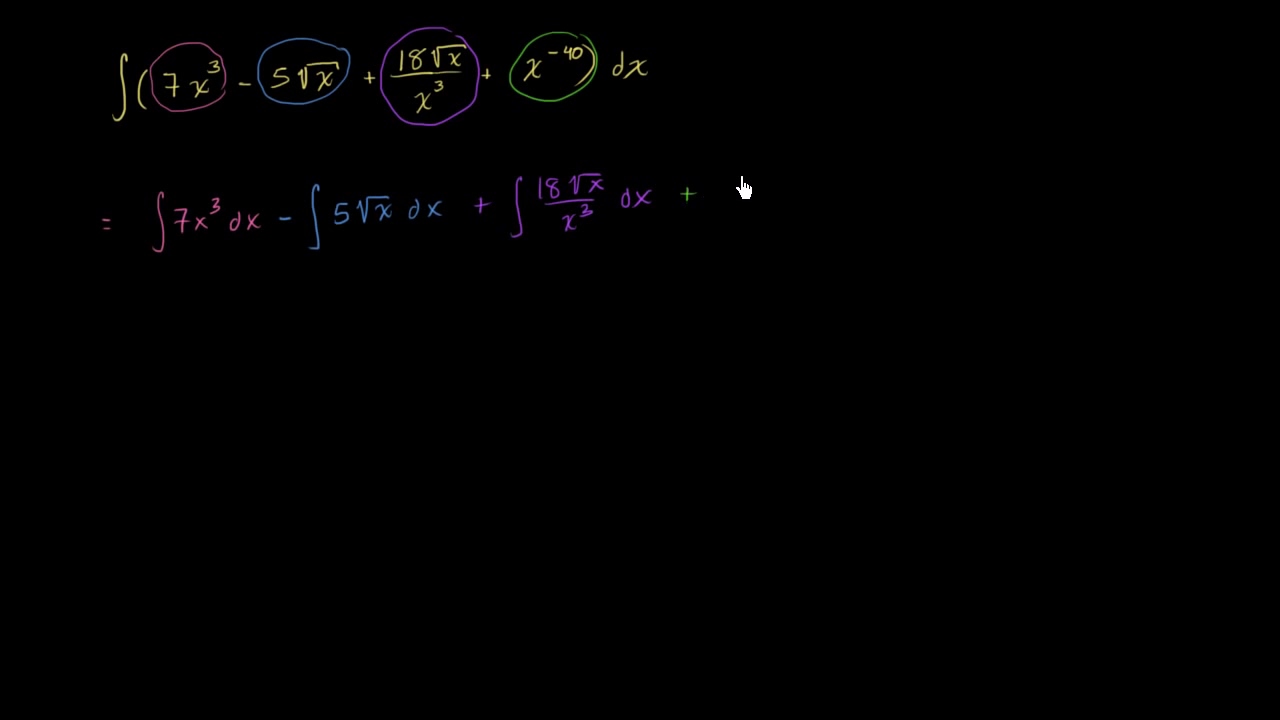 ∫(7x³ - 5√x + 18√x/x³ + x⁻⁴⁰) dx
= ∫7x³ dx - ∫5√x dx + ∫18√x/x³ dx +